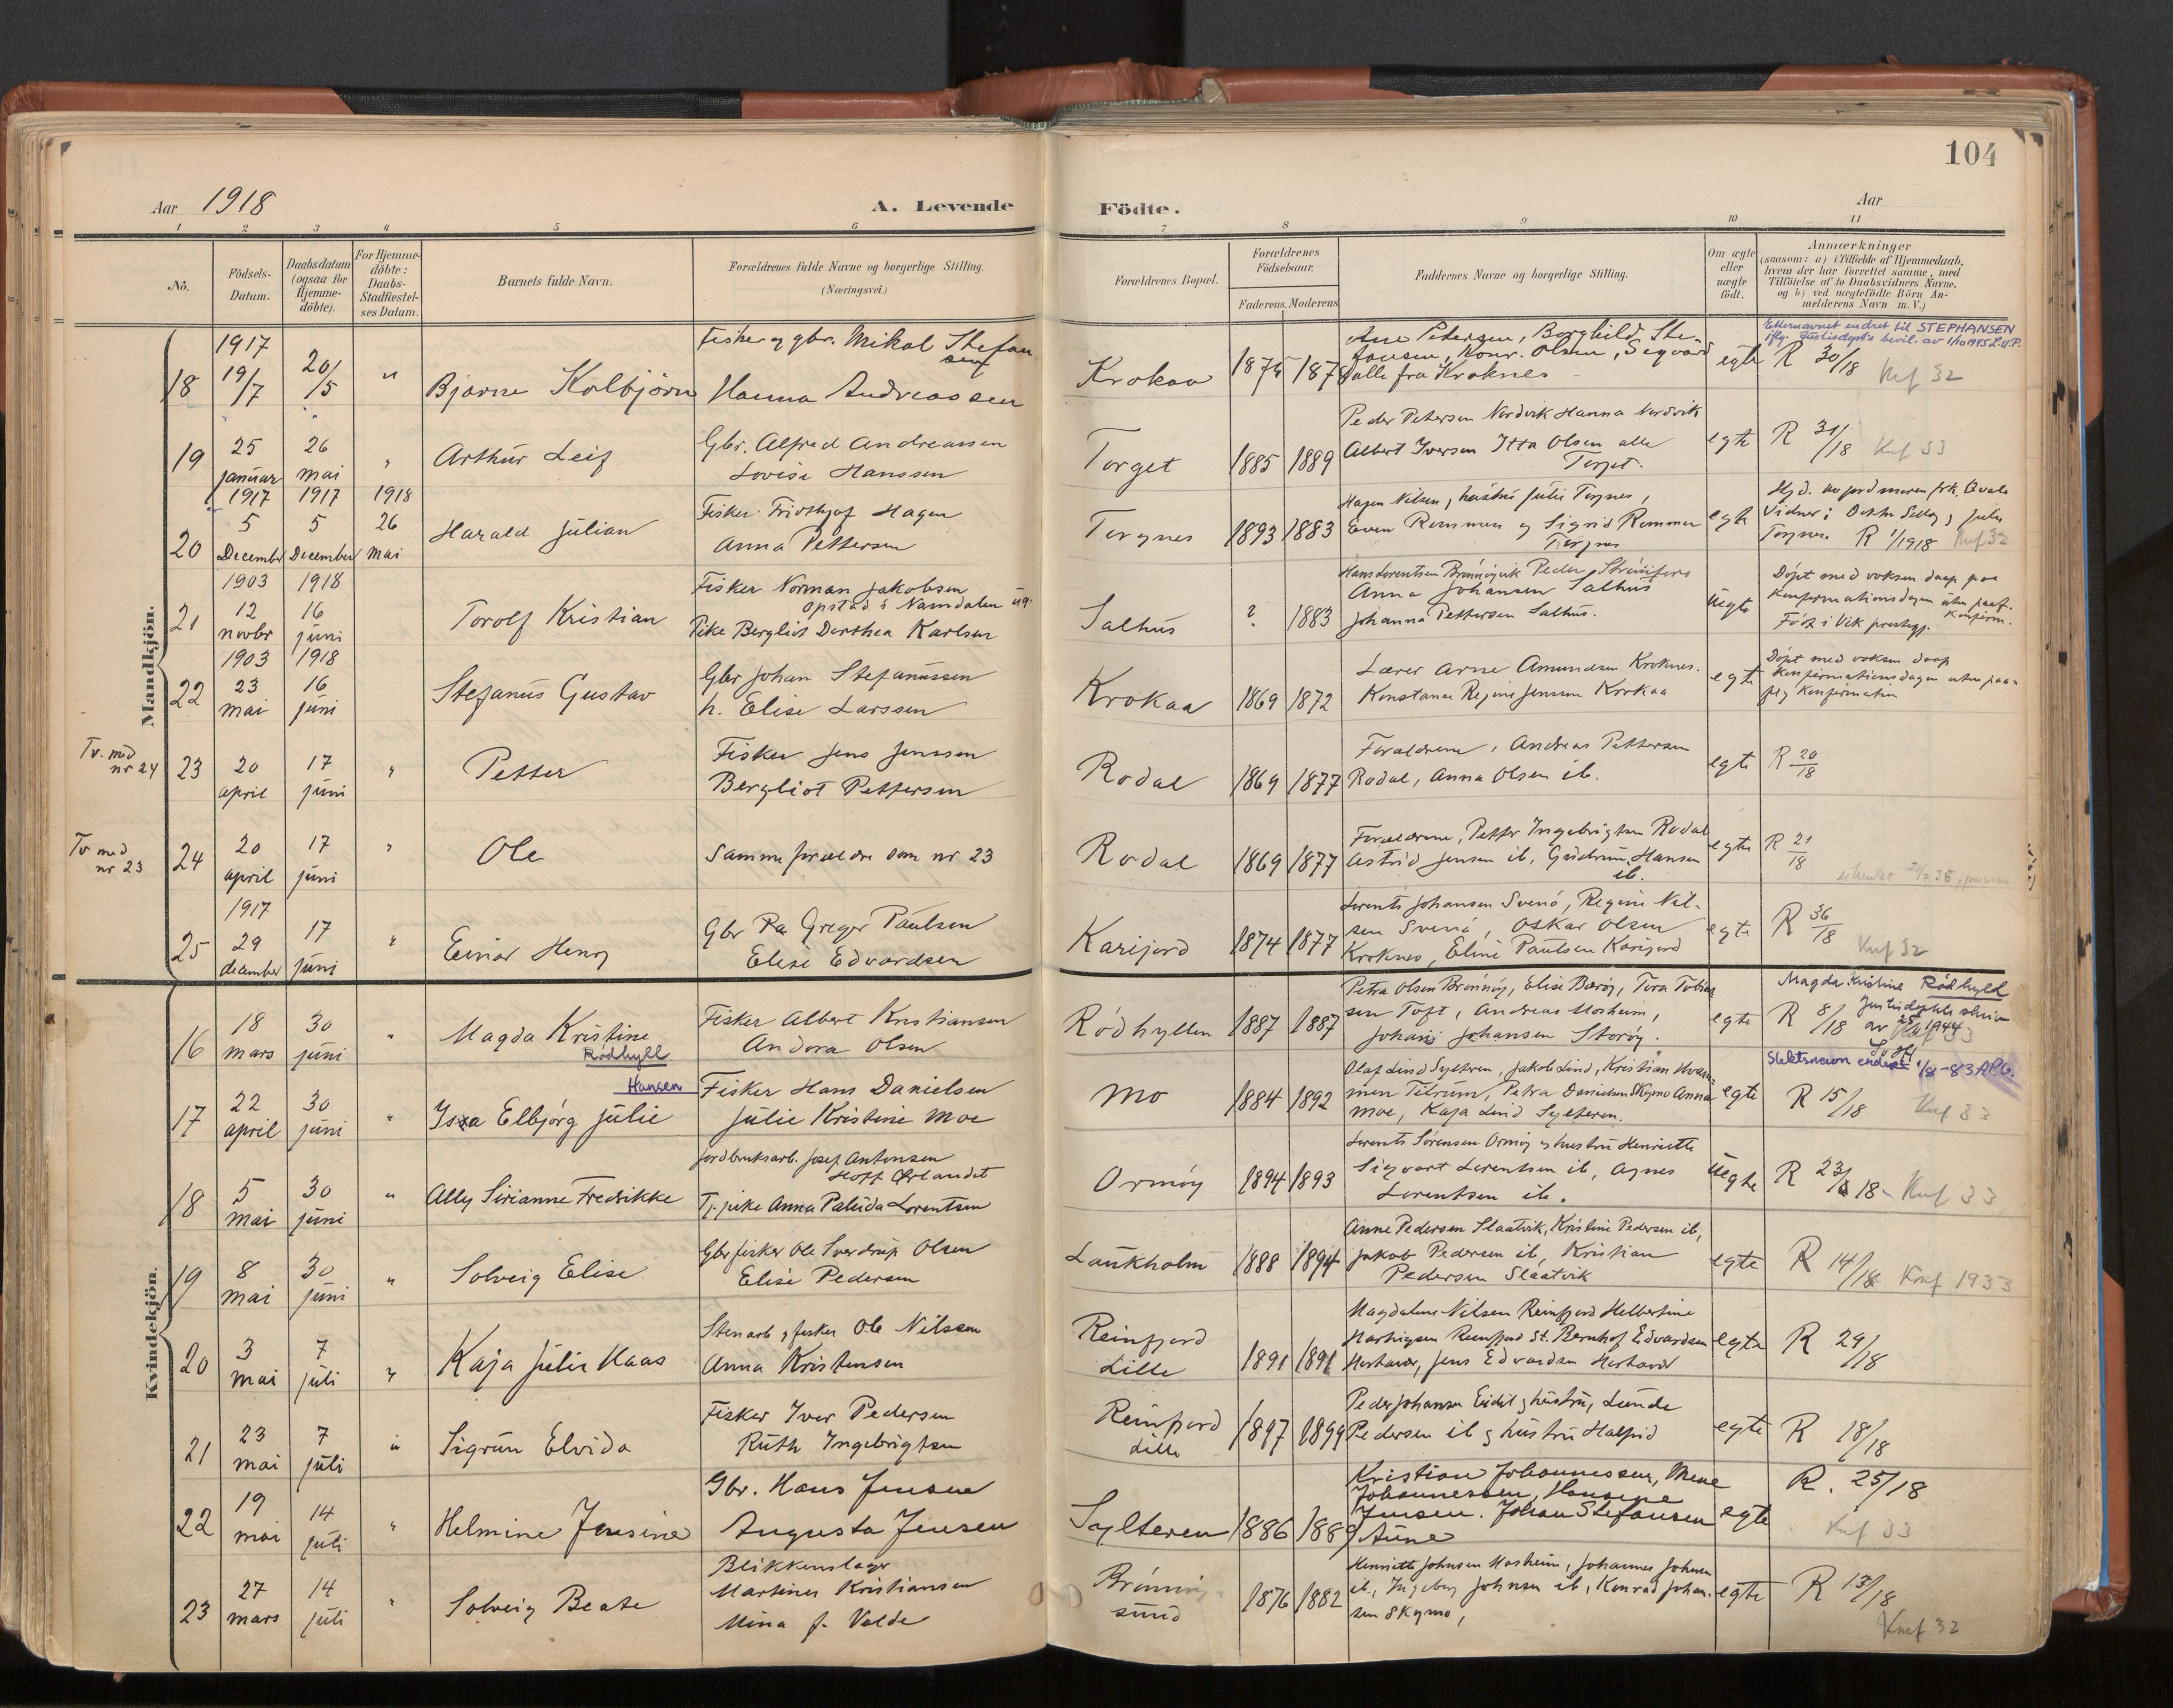 104
Aar 1918
A. Levende
Födte.
Aar
1 2 3 4 5 6 7 8 9 10 11
No.
Födsels-Datum.
Daabsdatum (ogsaa for Hjemme-döbte).
For Hjemme-döbte: Daabs-Stadfæstel-ses Datum.
Barnets fulde Navn.
Forældrenes fulde Navne og borgerlige Stilling.
(Næringsvei.)
Forældrenes Bopæl.
Forældrenes Födselsaar.
Faderens. Moderens
Faddernes Navne og borgerlige Stilling.
Om ægte eller uægte födt.
Anmærkninger
(saasom: a) i Tilfælde af Hjemmedaab,
hvem der har forrettet samme, med
Tilföielse af to Daabsvidners Navne,
og b) ved uægtefödte Börn An-
melderens Navn m. V.)
Mandkjön.
18 1917 19/7 20/5 " Bjarne Kolbjörn
Fisker og gbr. Mikal Stefansen
Hanna Andreassen
Krokaa 1875 1878
Ane Petersen, Borghild Ste-
fansen, Konr. Olsen, Sigvard
alle fra Kroknes
egte R 30/18 Knf 32
Etternavnet endret til STEPHANSEN
iflg. Justisdept's bevil. av 1/10 1945 L.U.P.
19 25 januar 26 mai " Arthur Leif
Gbr. Alfred Andreassen
Lovise Hanssen
Torget 1885 1889
Peder Petersen Nordvik Hanna Nordvik
Albert Iversen Itta Olsen alle
Torget.
egte R 31/18 Knf 33
20 1917 5 December 1917 5 December 1918 26 mai Harald Julian
Fisker Fridthjof Hagen
Anna Pettersen
Torgnes 1893 1883
Hagen Nilsen, hustru Julie Torgnes,
Even Remmen og Sigrid Remmen
Torgnes
egte
Hjd. av jordmoren frk. Qvale
Torgnes. R 1/1918 Knf 32
21 1903 12 novbr 1918 16 juni Torolf Kristian
Fisker Norman Jakobsen
Opstad i Namdalen ug.
Pike Bergliot Dorthea Karlsen
Salhus ? 1883
Anna Johansen Salhus
Johanna Pettersen Salhus.
uegte
Döpt med voksen daap paa
Konfirmationsdagen uten paaf.
Konfirm.
Född i Vik prestegj.
22 1903 23 mai 1918 16 juni Stefanus Gustav
Gbr Johan Stefanussen
h. Elise Larssen
Krokaa 1869 1872
Lærer Arne Amundsen Kroknes.
Konstanse Regine Jensen Krokaa
egte
Döpt med voksen daap
Konfirmationsdagen uten paa-
fölg Konfirmation
Tv. med nr 24
23 20 april 17 juni " Petter
Fisker Jens Jenssen
Bergliot Pettersen
Rodal 1869 1877
Forældrene, Andreas Pettersen
Rodal, Anna Olsen ib.
egte R 20/18
Tv med nr 23
24 20 april 17 juni " Ole
Samme forældre som nr 23
Rodal 1869 1877
Forældrene, Petter Ingebrigtsen Rodal
Astrid Jensen ib, Gudrun Hansen
ib.
egte R 21/18
25 1917 29 december 17 juni " Einar Henry
Gbr Paul Greger Paulsen
Elise Edvardsen
Karijord 1874 1877
Lorents Johansen Svenö, Regine Nil-
sen Svenö, Oskar Olsen
Kroknes, Eline Paulsen Karijord
egte R 36/18 Knf 32
Kvindekjön.
16 18 mars 30 juni " Magda Kristine
Rödhyll
Fisker Albert Kristiansen
Andora Olsen
Rödhyllen 1887 1887
Petra Olsen Brönnöy, Elise Bæröy, Tora Tobias-
sen Toft, Andreas Mosheim,
Johan Johansen Storöy.
egte R 8/18
Magda Kristine Rödhyll
17 22 april 30 juni " Isxa Elbjörg Julie
Hansen
Fisker Hans Danielsen
Julie Kristine Moe
Mo 1884 1892
Olaf Lind Sylteren, Jakob Lind, Kristian
men Tilrum, Petra Danielsen Skymo Anna
Moe, Kaja Lind Sylteren.
egte R 15/18 Knf 33
Slektsnavn endret 1/8-83 APG.
18 5 mai 30 juni " Ally Sirianne Fredrikke
Jordbruksarb. Josef Antonsen
Hoff Ørlandet
Tj. pike Anna Palida Lorentsen
Ormöy 1894 1893
Lorents Sörensen Ormöy og hustru Henriette
Sigvart Lorentsen ib, Agnes
Lorentsen ib.
uegte R 23/18 Knf 33
19 8 mai 30 juni " Solveig Elise
Gbr fisker Ole Sverdrup Olsen
Elise Pedersen
Laukholm 1888 1894
Anne Pedersen Slaatvik, Kristine Pedersen ib,
Jakob Pedersen ib, Kristian
Pedersen Slaatvik
egte R 14/18 Knf 1933
20 3 mai 7 juli " Kaja Julie Haas
Stenarb. og fisker Ole Nilssen
Anna Kristensen
Reinfjord Lille 1891 1891
Magdalene Nilsen Reinfjord Helbertine
Hartvigsen Reinfjord St. Bernhof Edvardsen
Horsvær, Jens Edvardsen Horsvær
egte R 29/18
21 23 mai 7 juli " Sigrun Elvida
Fisker Iver Pedersen
Ruth Ingebrigtsen
Reinfjord Lille 1897 1899
Peder Johansen Eidet og hustru, Lunde
Pedersen ib og hustru Halfrid
egte R 18/18
22 19 mai 14 juli " Helmine Jensine
Gbr. Hans Jensen
Augusta Jensen
Sylteren 1886 1889
Kristian Johannessen, Mene
Johannessen, Hansine
Jensen. Johan Stefansen
Aune
egte R. 25/18 Knf 33
23 27 mars 14 juli " Solveig Beate
Blikkenslager
Martinus Kristiansen
Mina f. Valde
Brönnöysund 1876 1882
Henriette Johnsen Mosheim, Johannes Johnsen
ib, Ingeborg Johnsen ib, Konrad Johan-
sen Skymo,
egte R 13/18
Knf 32